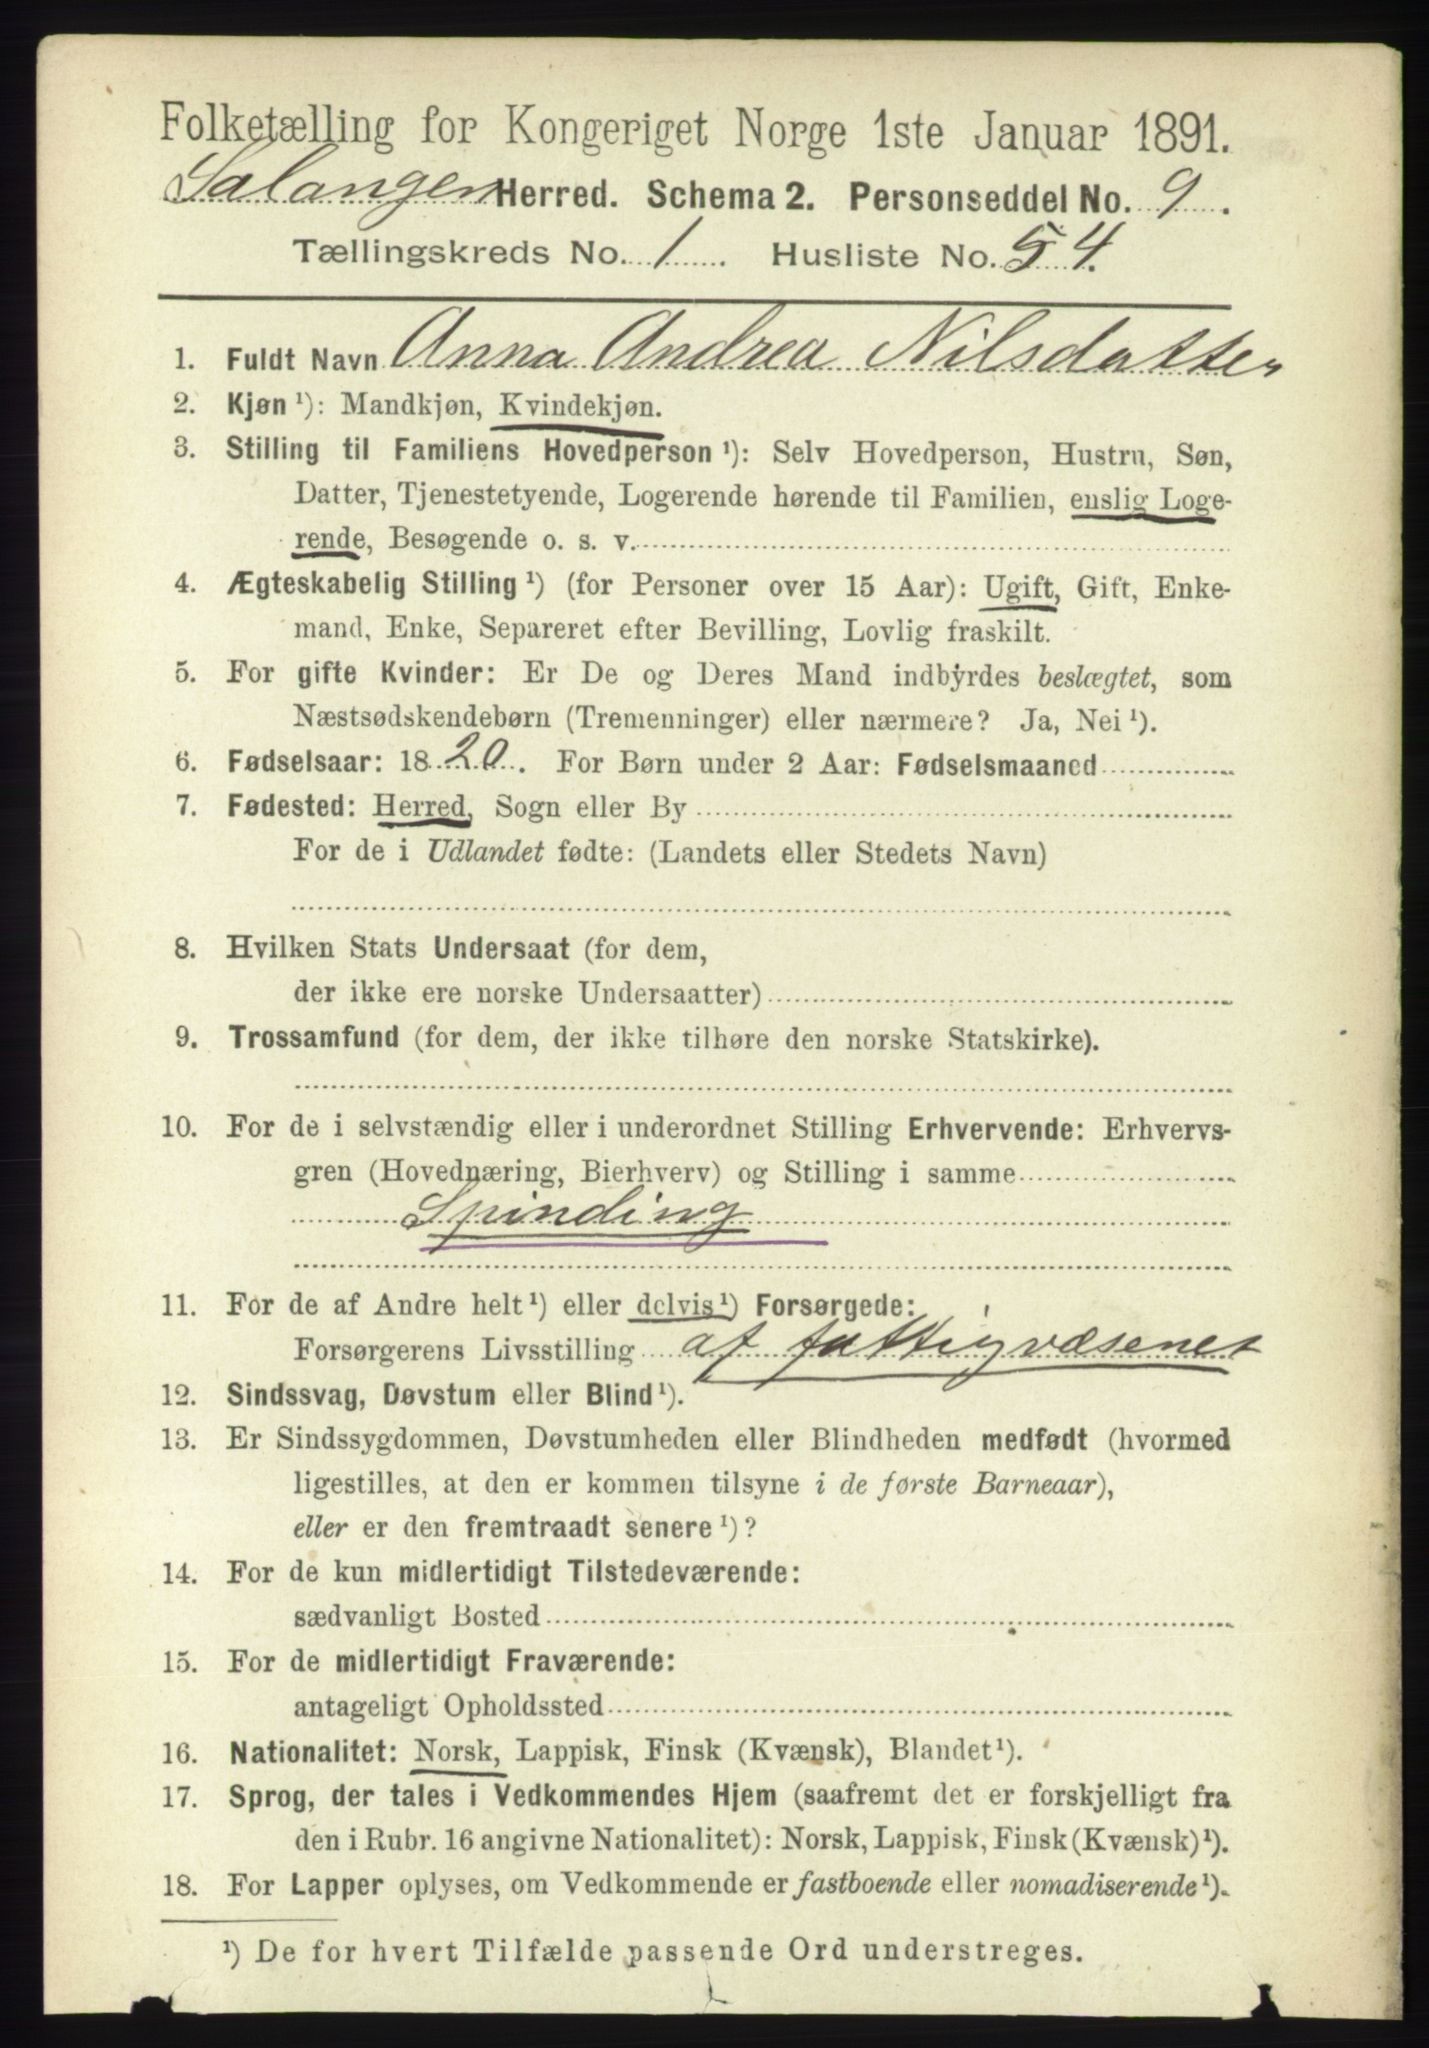 Folketælling for Kongeriget Norge 1ste Januar 1891.
Salangen Herred. Schema 2. Personseddel No. 9.
Tællingskreds No. 1. Husliste No. 54.
1. Fuldt Navn Anna Andrea Nilsdatter
2. Kjøn ¹): Mandkjøn, Kvindekjøn.
3. Stilling til Familiens Hovedperson ¹): Selv Hovedperson, Hustru, Søn,
Datter, Tjenestetyende, Logerende hørende til Familien, enslig Loge-
rende, Besøgende o. s. v.
4. Ægteskabelig Stilling ¹) (for Personer over 15 Aar): Ugift, Gift, Enke-
mand, Enke, Separeret efter Bevilling, Lovlig fraskilt.
5. For gifte Kvinder: Er De og Deres Mand indbyrdes beslægtet, som
Næstsødskendebørn (Tremenninger) eller nærmere? Ja, Nei ¹).
6. Fødselsaar: 1820. For Børn under 2 Aar: Fødselsmaaned
7. Fødested: Herred, Sogn eller By
For de i Udlandet fødte: (Landets eller Stedets Navn)
8. Hvilken Stats Undersaat (for dem,
der ikke ere norske Undersaatter)
9. Trossamfund (for dem, der ikke tilhøre den norske Statskirke).
10. For de i selvstændig eller i underordnet Stilling Erhvervende: Erhvervs-
gren (Hovednæring, Bierhverv) og Stilling i samme
Spinding
11. For de af Andre helt ¹) eller delvis ¹) Forsørgede:
Forsørgerens Livsstilling af fattigvæsenet
12. Sindssvag, Døvstum eller Blind ¹).
13. Er Sindssygdommen, Døvstumheden eller Blindheden medfødt (hvormed
ligestilles, at den er kommen tilsyne i de første Barneaar),
eller er den fremtraadt senere ¹)?
14. For de kun midlertidigt Tilstedeværende:
sædvanligt Bosted
15. For de midlertidigt Fraværende:
antageligt Opholdssted
16. Nationalitet: Norsk, Lappisk, Finsk (Kvænsk), Blandet ¹).
17. Sprog, der tales i Vedkommendes Hjem (saafremt det er forskjelligt fra
den i Rubr. 16 angivne Nationalitet): Norsk, Lappisk, Finsk (Kvænsk) ¹).
18. For Lapper oplyses, om Vedkommende er fastboende eller nomadiserende ¹).
¹) De for hvert Tilfælde passende Ord understreges.